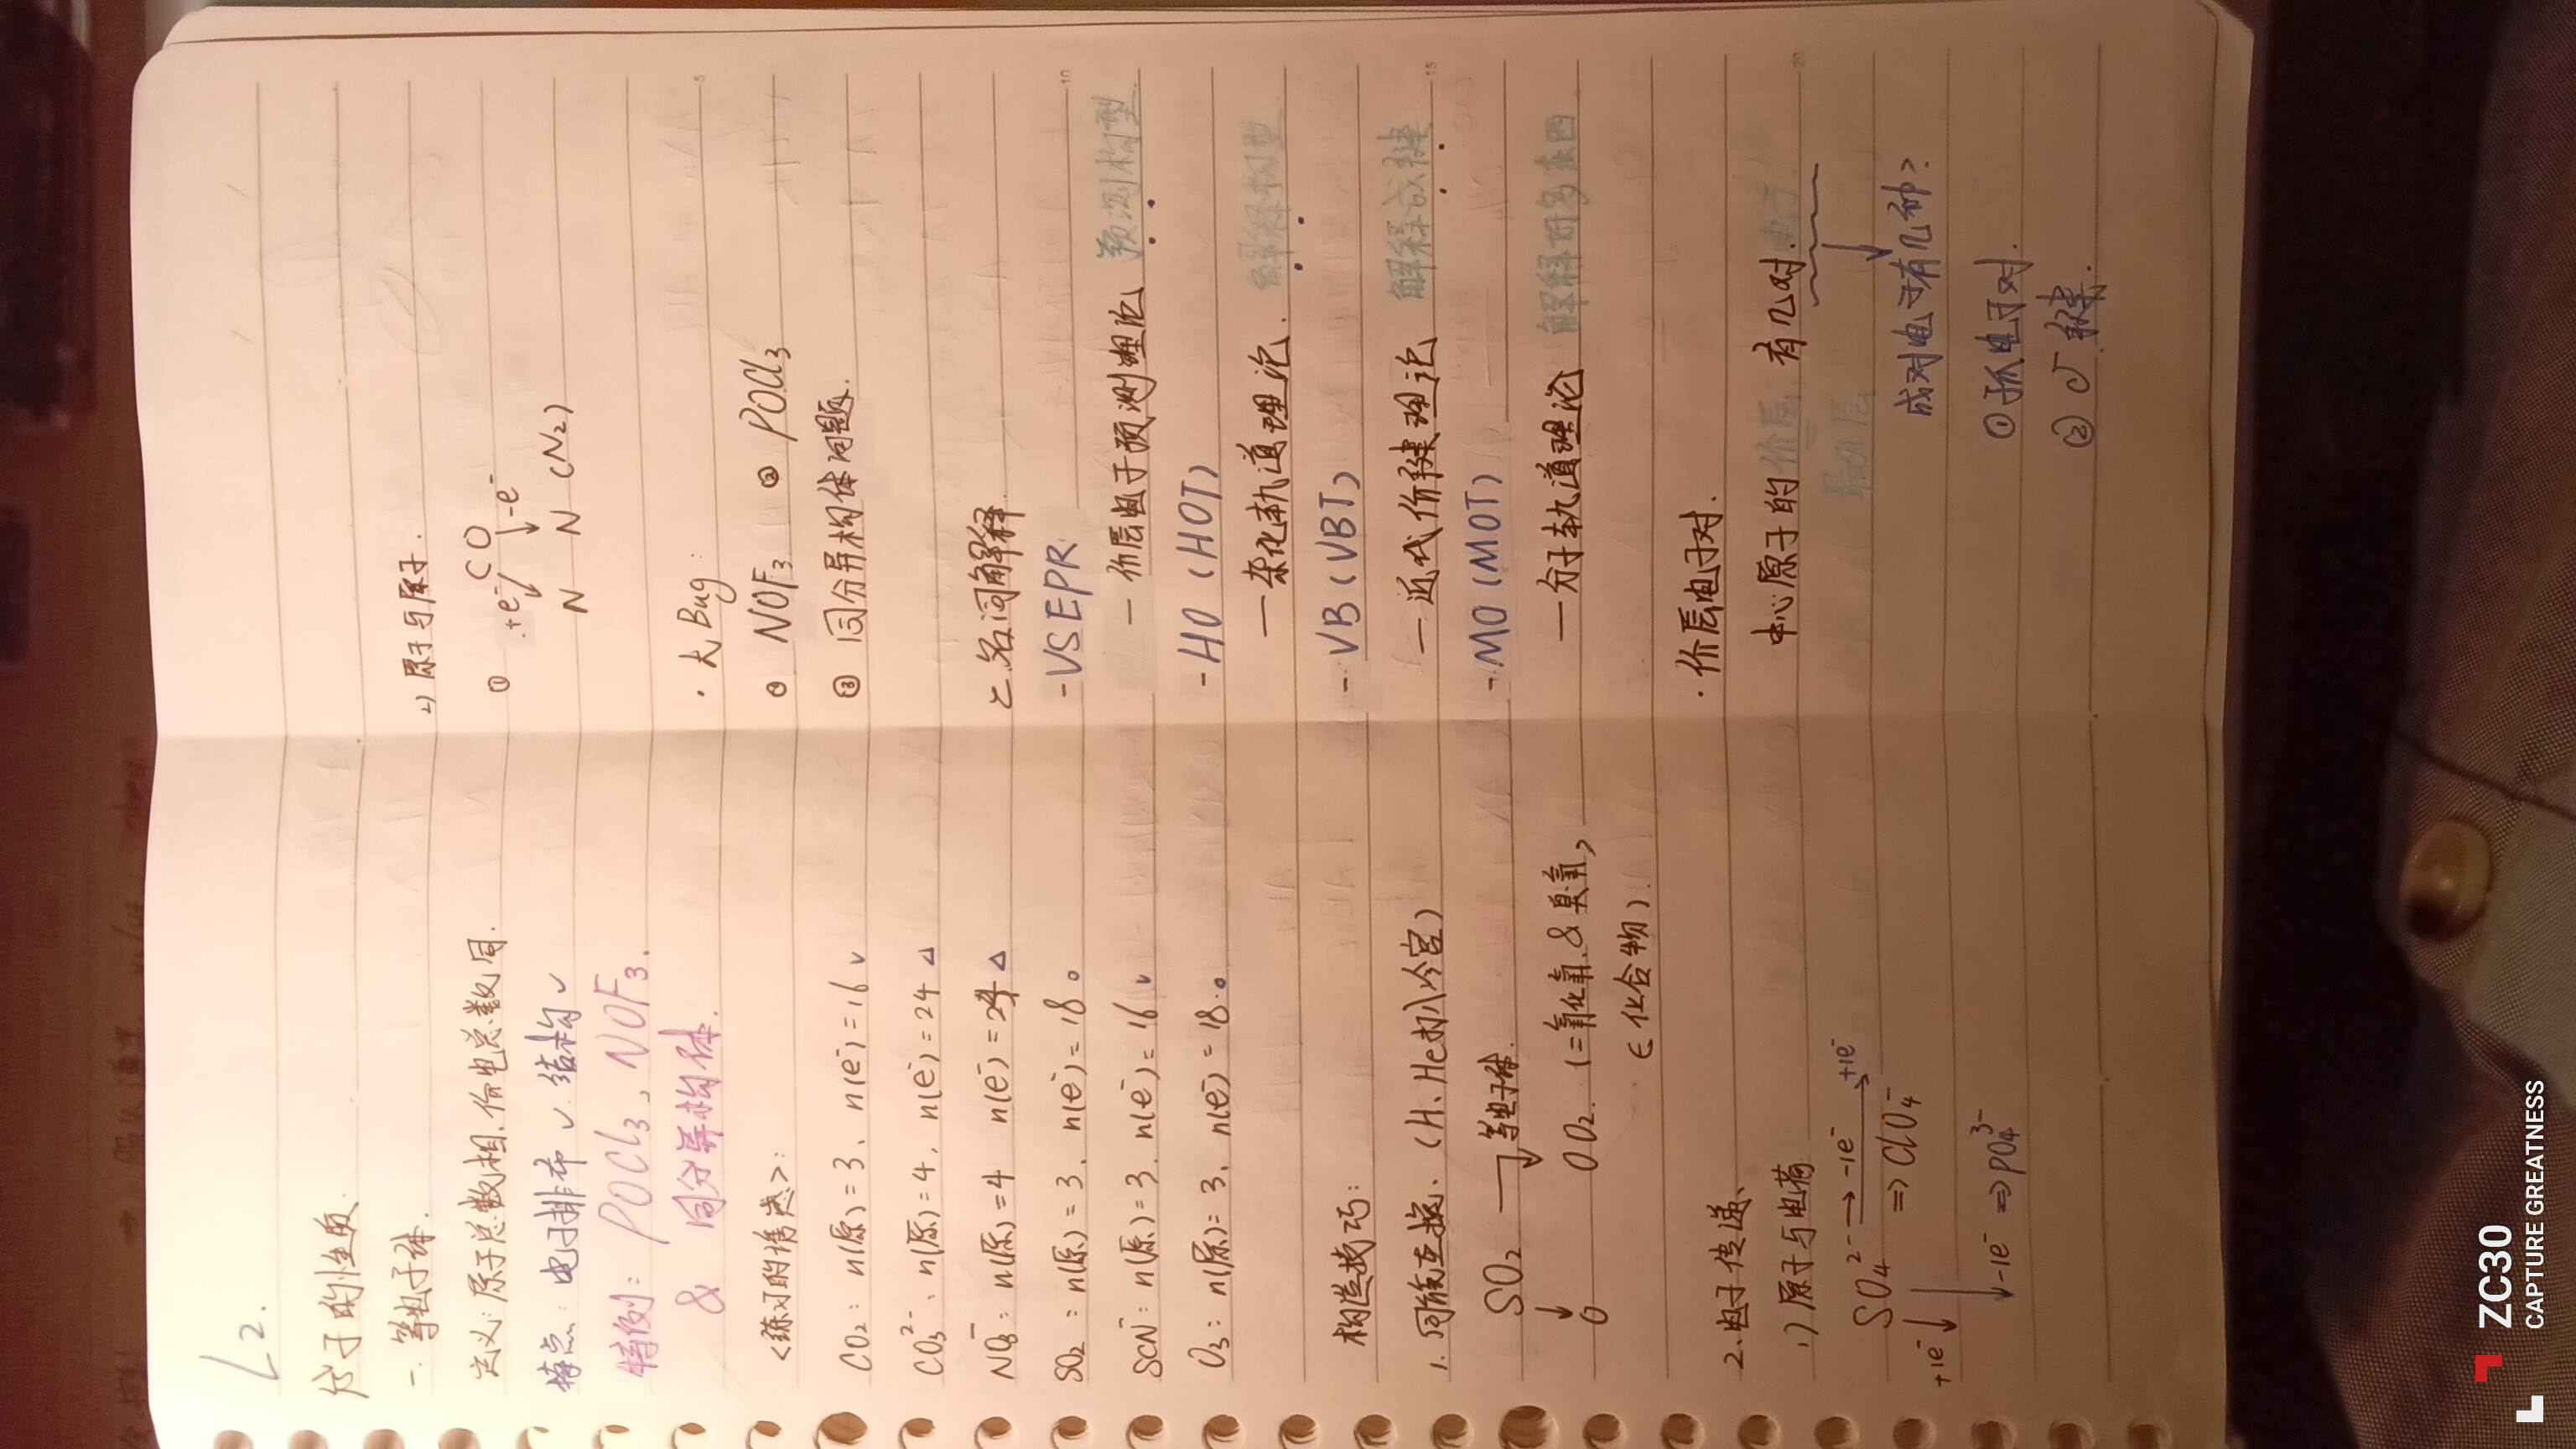 L2.
分子的性质.
一. 等电子体.
定义: 原子总数相、价电总数同.
特点: 电子排布 ✓ 结构 ✓
特例: POCl₃、NOF₃.
& 同分异构体.
<练习的诱惑>:
CO₂: n(原) = 3、n(e⁻) = 16 ✓
CO₃²⁻: n(原) = 4, n(e⁻) = 24 △
NO₃⁻: n(原) = 4 n(e⁻) = 24 △
SO₂: n(原) = 3、n(e⁻) = 18 ○
SCN⁻: n(原) = 3、n(e⁻) = 16 ✓
O₃: n(原) = 3、n(e⁻) = 18 ○
构造技巧:
1. 同族互换、(H、He打入冷宫)
SO₂ → 等电子体.
↓
O OO₂. (=氧化氧 & 臭氧,
∈ 化合物).
2. 电子传递、
1) 原子与电荷
SO₄²⁻ → -1e⁻ → +1e⁻
+1e⁻ ↓ ⇒ ClO₄⁻
↓ -1e⁻ ⇒ PO₄³⁻
2) 原子与原子.
① +e⁻ CO -e⁻
N N (N₂)
· 大Bug:
① NOF₃ ② POCl₃
③ 同分异构体问题.
二. 名词解释
- VSEPR
— 价层电子预测理论 预测构型.
- HO (HOT)
— 杂化轨道理论. 解释构型
- VB (VBT)
— 近代价键理论 解释成键.
- MO (MOT)
— 分子轨道理论 解释好多东西
· 价层电子对.
中心原子的价层 有几对电子.
最外层
↓
成对电子有几种?
① 孤电子对.
② σ键.
ZC30
CAPTURE GREATNESS